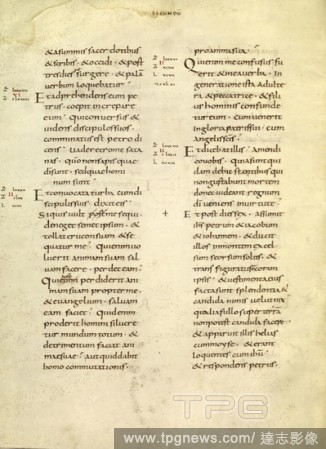 & asummis sacerdotibus
& scribis & occidi & post
tres dies surgere & palam
verbum loquebatur
Et adprehendens eum pe
trus coepit increpare
eum Qui conversus &
videns discipulos suos
comminatus est petro di
cens vade retro me sata
nas quo non sapis quae
di sunt sed quae homi
num sunt
Et convocata turba cum di
scipulis suis dixit eis
Si quis vult post me sequi
deneget semet ipsum &
tollat crucem suam & se
quatur me Qui enim vo
luerit animam suam sal
vam facere perdet eam
Qui enim perdiderit ani
mam suam propter me
& evangelium salvam
eam faciet Quid enim
proderit homini si lucre
tur mundum totum &
detrimentum faciat ani
mae suae aut quid dabit
homo commutationis
pro anima sua
Qui enim me confusus fu
erit & mea verba In
generatione ista adulte
ra & peccatrice & fili
us hominis confunde
tur eum cum venerit
in gloria patris sui cum
angelis scis
Et dicebat illis Amen di
co vobis quia sunt qui
dam de hic stantibus qui
non gustabunt mortem
donec videant regnum
di veniens in virtute
Et post dies sex assumit
ihs petrum & iacobum
& iohannem & ducit
illos in montem excel
sum seorsum solos &
transfiguratus est coram
ipsis & vestimenta eius
facta sunt splendentia &
candida nimis velut nix
qualia fullo super terra
non potest candida facere
& apparuit illis helias
cum moyse & erant
loquentes cum ihu
& respondens petrus
TPG
www.tpgnews.com / 達志影像